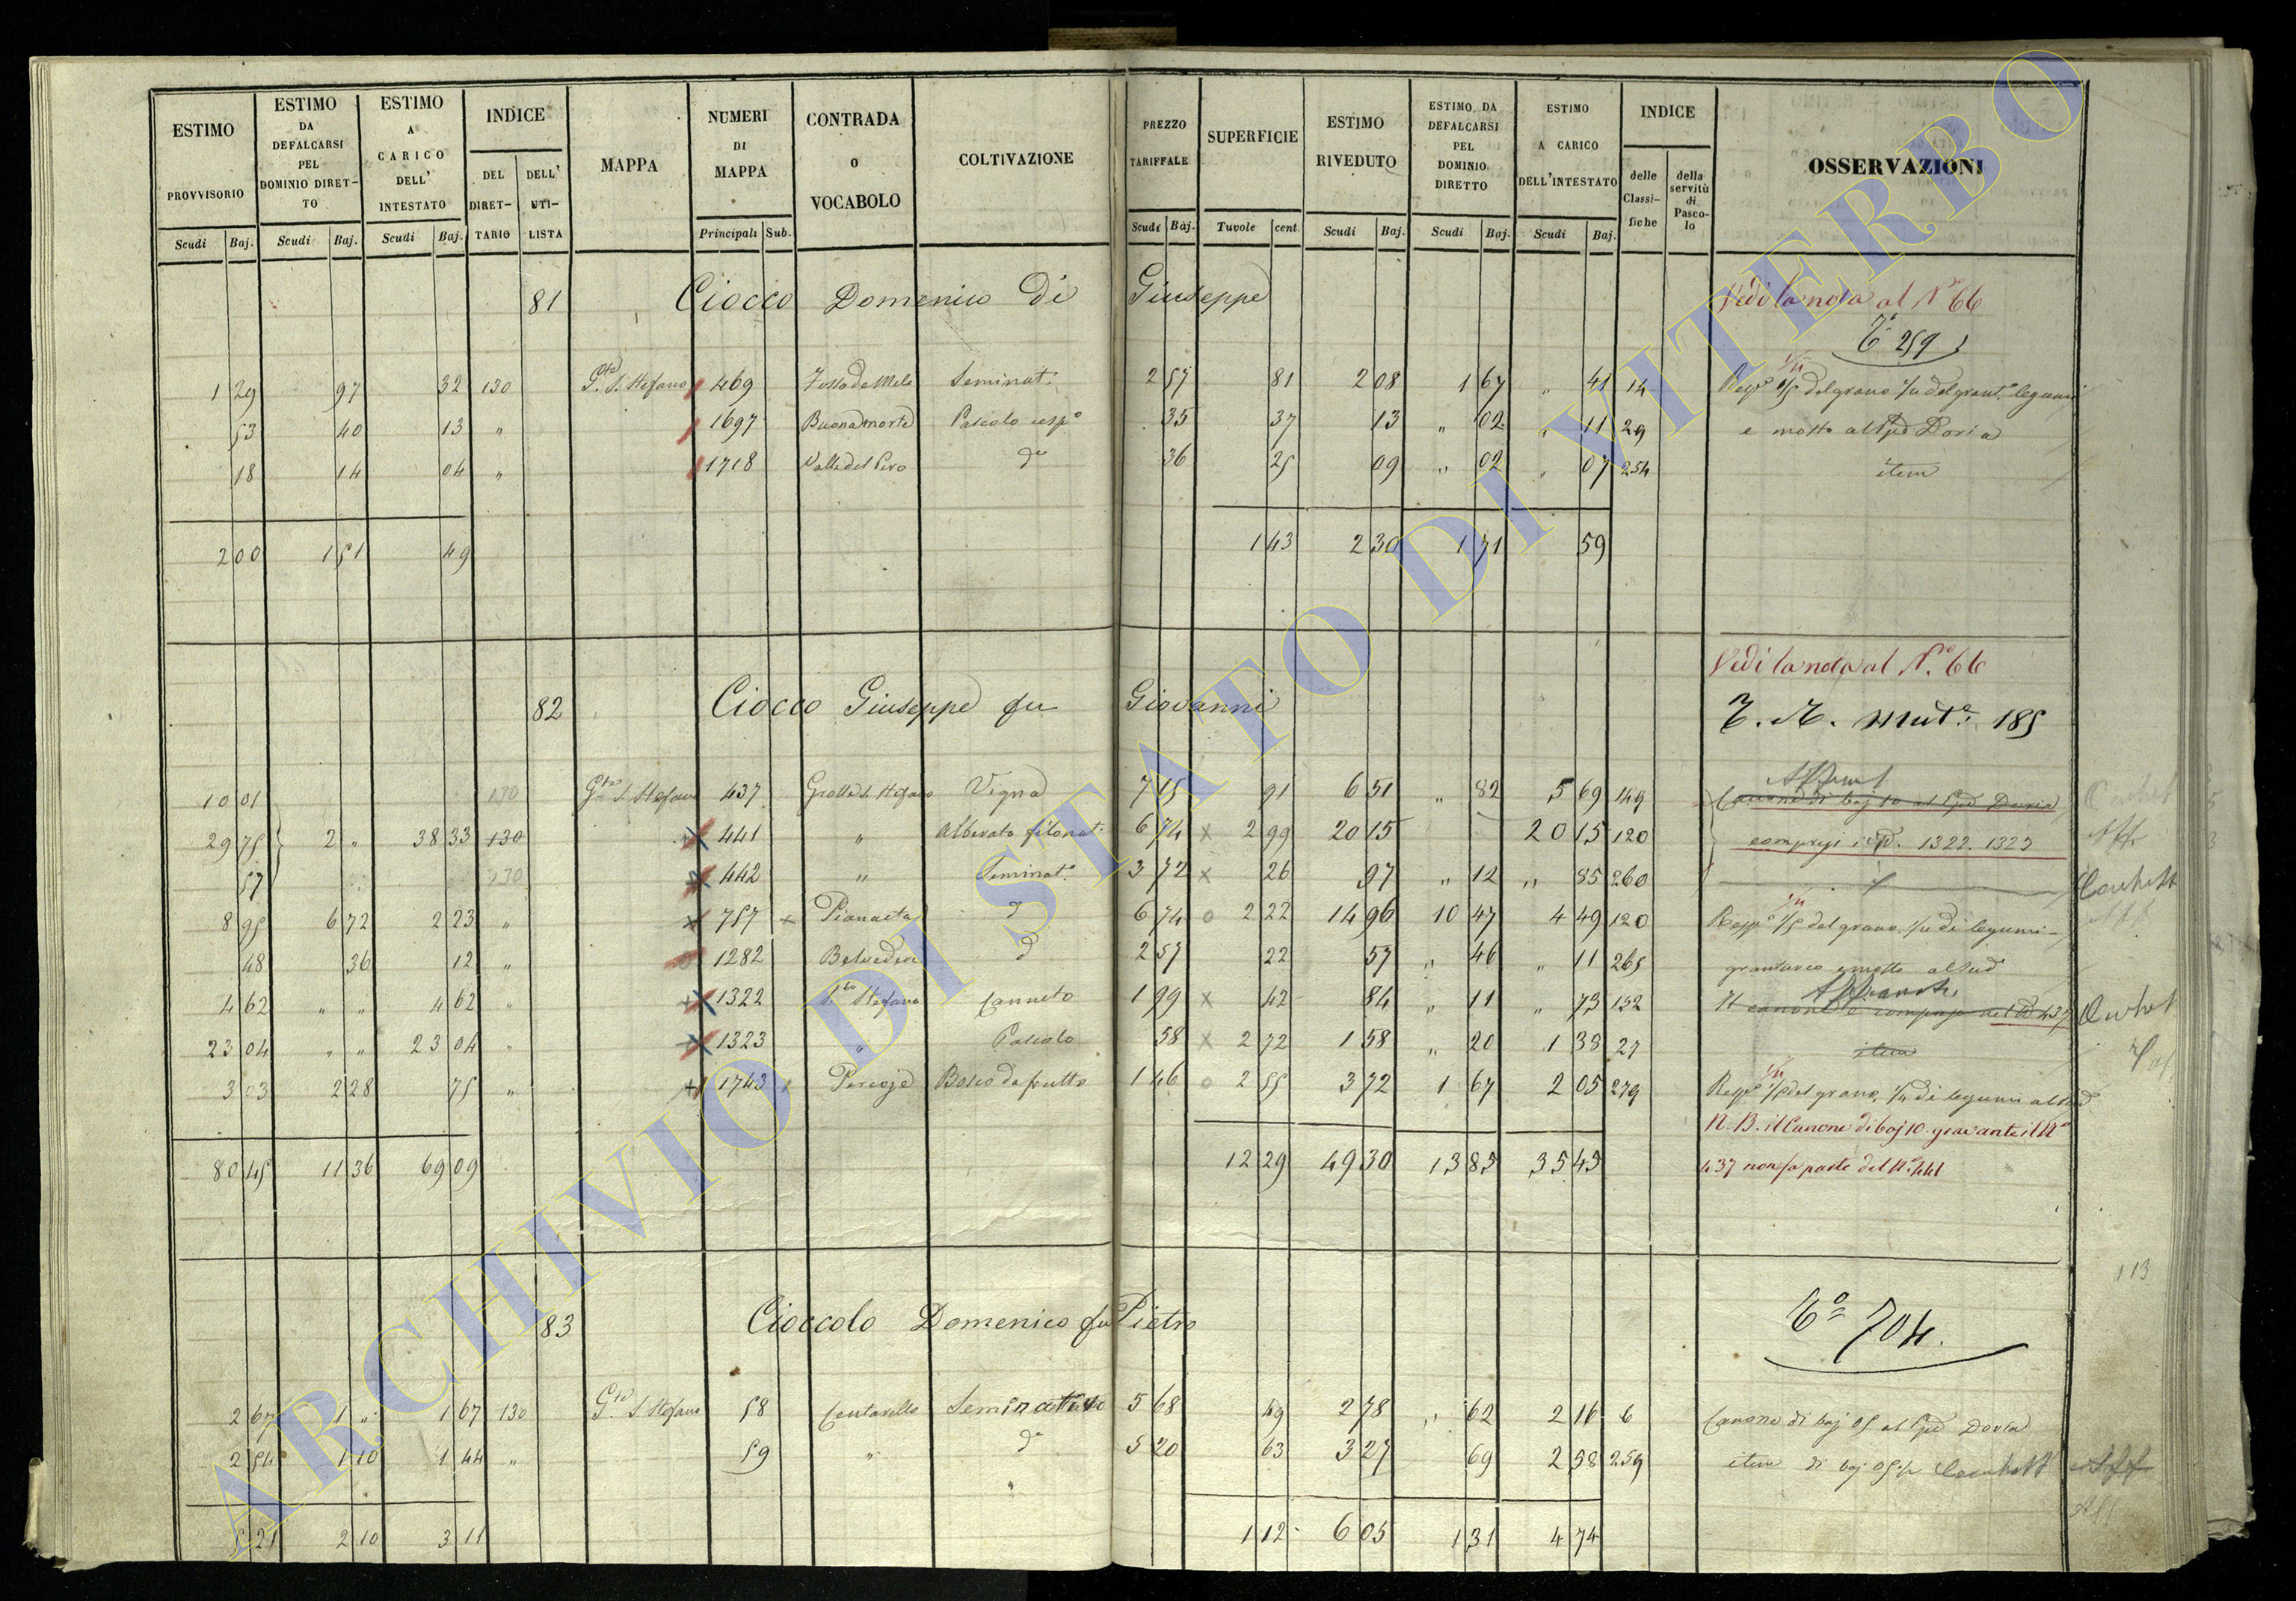 ESTIMO PROVVISORIO | ESTIMO DA DEFALCARSI PEL DOMINIO DIRET-TO | ESTIMO A CARICO DELL' INTESTATO | INDICE DEL DIRET-TARIO | DELL' UTI-LISTA | MAPPA | NUMERI DI MAPPA | CONTRADA o VOCABOLO | COLTIVAZIONE | PREZZO TARIFFALE | SUPERFICIE | ESTIMO RIVEDUTO | ESTIMO DA DEFALCARSI PEL DOMINIO DIRETTO | ESTIMO A CARICO DELL'INTESTATO | INDICE delle Classi-fiche | della servitù di Pasco-lo | OSSERVAZIONI
Scudi Baj. Scudi Baj. Scudi Baj. Principali Sub. Scudi Baj. Tavole cent. Scudi Baj. Scudi Baj. Scudi Baj.
81 Ciocco Domenico di Giuseppe Vedi la nota al N° 66
259
1 29 97 32 130 S. Stefano 469 Fosso de Mele Seminat. 2 57 81 2 08 1 67 " 41 14 Resp. 1/5 del grano 1/4 del grant. legumi
53 40 13 " 1697 Buonamorte Pascolo cesp° 35 37 13 " 02 " 11 29 e mosto al Doria
18 14 04 " 1718 Valle del Pero d° 36 25 09 " 02 " 07 254 item
2 00 1 51 49 1 43 2 30 1 71 59
Vedi la nota al N.° 66
82 Ciocco Giuseppe fu Giovanni
Mut. 185
10 01 130 S. Stefano 437 Grotte S. Stefano Vigna 7 15 91 6 51 " 82 5 69 149 Canone di baj 10 al Doria
29 75 2 " 38 33 130 441 " Alberato filonat. 6 74 x 2 99 20 15 20 15 120 compresi i 1322. 1323
57 130 442 " Seminat. 3 72 x 26 97 " 12 " 85 260
8 95 6 72 2 23 " 757 Pianaeta d° 6 74 o 2 22 14 96 10 47 4 49 120 Resp. 1/5 del grano 1/4 di legumi
48 36 12 " 1282 Belvedere d° 2 57 22 57 " 46 " 11 265 granturco e mosto al
4 62 " " 4 62 " 1322 S.to Stefano Canneto 1 99 x 42 84 " 11 " 73 132
23 04 " " 23 04 " 1323 " Pascolo 58 x 2 72 1 58 " 20 1 38 27 item
3 03 2 28 75 " 1743 Bosco da frutto 1 46 o 2 55 3 72 1 67 2 05 279 Resp. 1/5 del grano, 1/4 di legumi al
N. B. il Canone di baj 10. gravante il N°
80 45 11 36 69 09 12 29 49 30 13 85 35 45 437 non fa parte del N° 441
113
83 Cioccolo Domenico fu Pietro
704.
2 67 1 " 1 67 130 S. Stefano 58 Centarello Seminativo 5 68 49 2 78 " 62 2 16 6 Canone di baj 05 al Doria
2 54 1 10 1 44 " 59 " d° 5 20 63 3 27 69 2 58 259 item di baj 05
5 21 2 10 3 11 1 12 6 05 1 31 4 74
ARCHIVIO DI STATO DI VITERBO